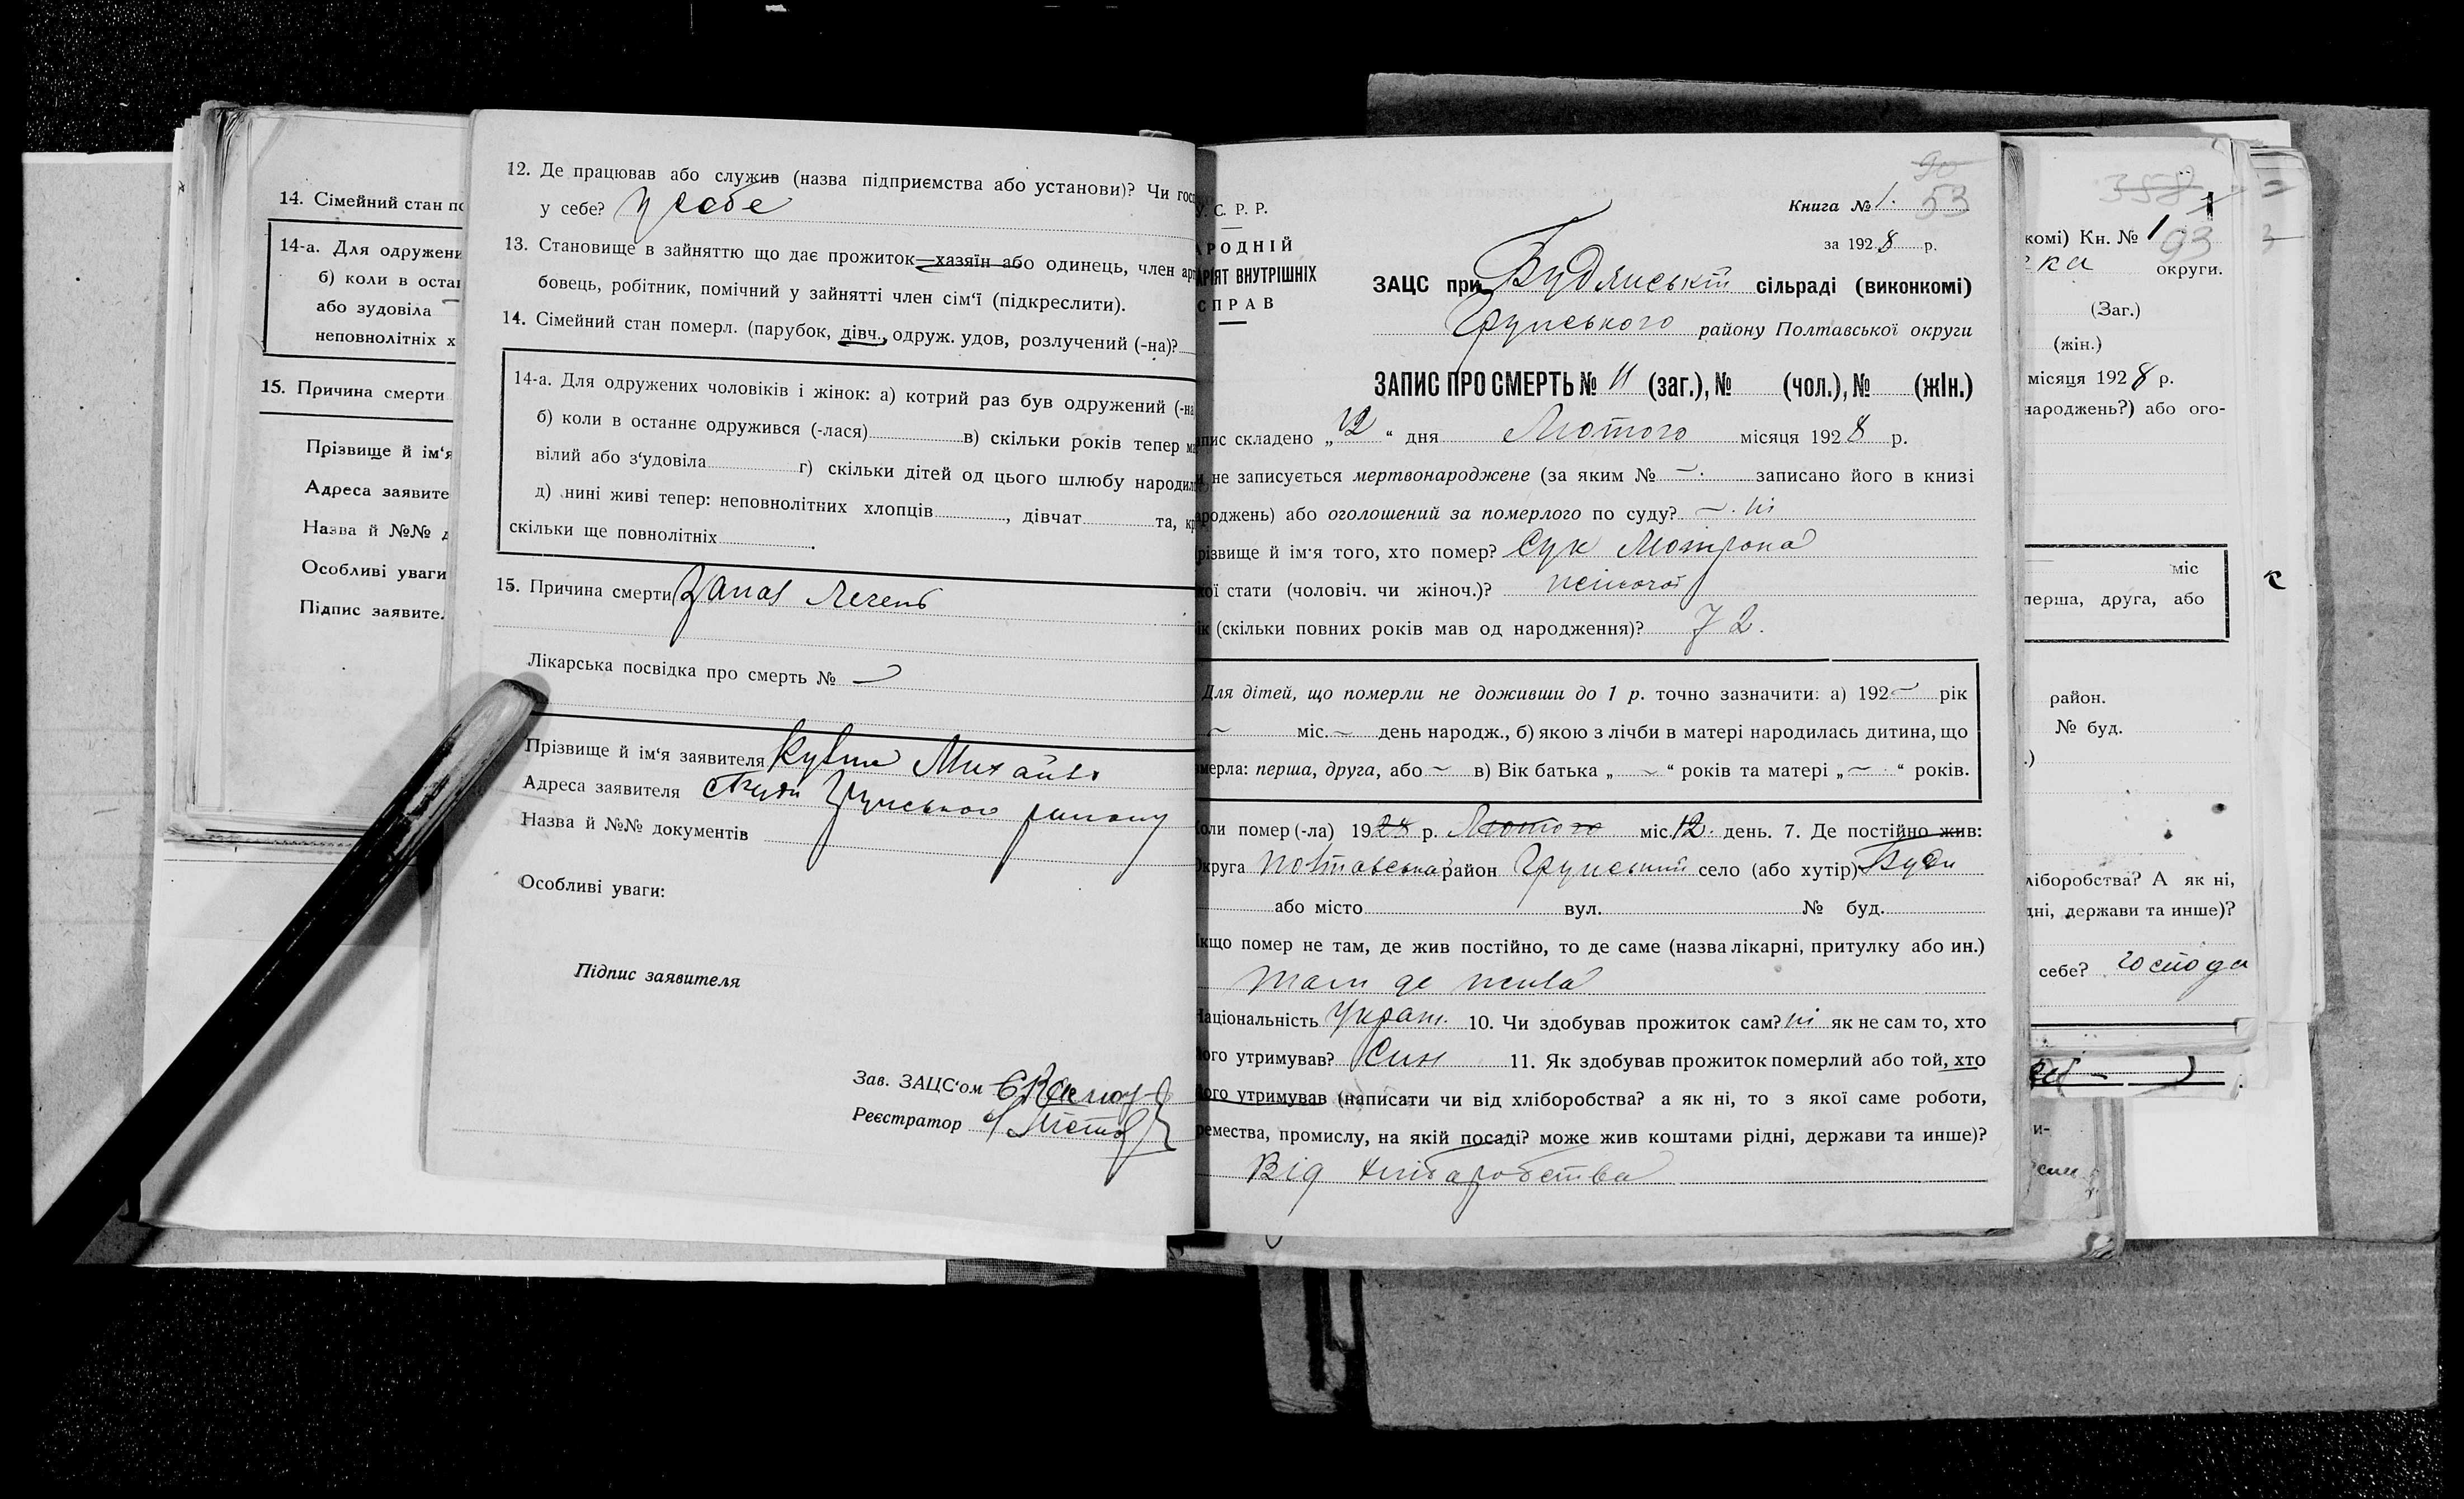 14. Сімейний стан по
14-а. Для одружени
б) коли в остан
або зудовіла
неповнолітніх х
15. Причина смерти
Прізвище й ім‘я
Адреса заявите
Назва й №№ д
Особливі уваги
Підпис заявите
12. Де працював або служив (назва підприємства або установи)? Чи гос
у себе? у себе
13. Становище в зайняттю що дає прожиток—хазяїн або одинець, член ар
бовець, робітник, помічний у зайнятті член сім‘ї (підкреслити).
14. Сімейний стан померл. (парубок, дівч., одруж. удов, розлучений (-на)?
14-а. Для одружених чоловіків і жінок: а) котрий раз був одружений (-на
б) коли в останнє одружився (-лася) в) скільки років тепер м
вілий або з‘удовіла г) скільки дітей од цього шлюбу народил
д) нині живі тепер: неповнолітних хлопців , дівчат та, к
скільки ще повнолітніх .
15. Причина смерти Запал легень
Лікарська посвідка про смерть № —
Прізвище й ім‘я заявителя Михайло
Адреса заявителя Буди Грунського району
Назва й №№ документів
Особливі уваги:
Підпис заявителя
Зав. ЗАЦС‘ом
Реєстратор
90
Книга № 1. 53
за 1928 р.
У. С. Р. Р.
АРОДНІЙ
АРІЯТ ВНУТРІШНІХ
СПРАВ
ЗАЦС при Будянській сільраді (виконкомі)
Грунського району Полтавської округи
ЗАПИС ПРО СМЕРТЬ № 11 (заг.), № (чол.), № (жін.)
пис складено „12“ дня Лютого місяця 1928 р.
не записується мертвонароджене (за яким № —. записано його в книзі
роджень) або оголошений за померлого по суду? —. ні
різвище й ім‘я того, хто помер? Сук Мотрона
кої стати (чоловіч. чи жіноч.)? жіночої
ік (скільки повних років мав од народження)? 72.
Для дітей, що померли не доживши до 1 р. точно зазначити: а) 192— рік
— міс. — день народж., б) якою з лічби в матері народилась дитина, що
мерла: перша, друга, або — в) Вік батька „ — “ років та матері „ — “ років.
Коли помер (-ла) 1928 р. Лютого міс. 12. день. 7. Де постійно жив:
Округа Полтавська район Грунський село (або хутір) Буди
або місто вул. № буд.
Якщо помер не там, де жив постійно, то де саме (назва лікарні, притулку або ин.)
там де жила
Національність Украін. 10. Чи здобував прожиток сам? ні як не сам то, хто
його утримував? Син 11. Як здобував прожиток померлий або той, хто
його утримував (написати чи від хліборобства? а як ні, то з якої саме роботи,
ремества, промислу, на якій посаді? може жив коштами рідні, держави та инше)?
Від хліборобства
358
комі) Кн. № 1 93
ка округи.
(Заг.)
(жін.)
місяця 1928 р.
народжень?) або ого-
міс
перша, друга, або
район.
№ буд.
.)
ліборобства? А як ні,
дні, держави та инше)?
себе? господа
и-